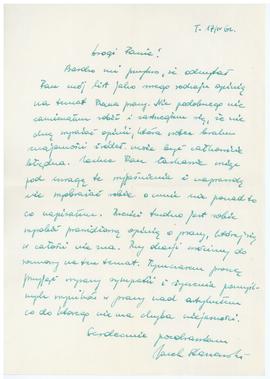 T. 17/IV 62.
Drogi Panie!
Bardzo mi przykro, że odczytał
Pan mój list jako swego rodzaju opinię
na temat Pana pracy. Nic podobnego nie
zamierzałem robić i zastrzegłem się, że nie
chcę wyrażać opinii, która wobec braku
znajomości źródeł może być całkowicie
błędna. Zechce Pan łaskawie wziąć
pod uwagę to wyjaśnienie i naprawdę
nie wyobrażać sobie o mnie nic ponad to
co napisałem. Trudno jest sobie
wyrobić prawidłową opinię o pracy, której się
w całości nie zna. Przy okazji wrócimy do
rozmowy na ten temat. Tymczasem proszę
przyjąć wyrazy sympatii i życzenia pomyśl-
nych wyników w pracy nad artykułem
co do którego nie ma chyba niejasności.
Serdecznie pozdrawiam